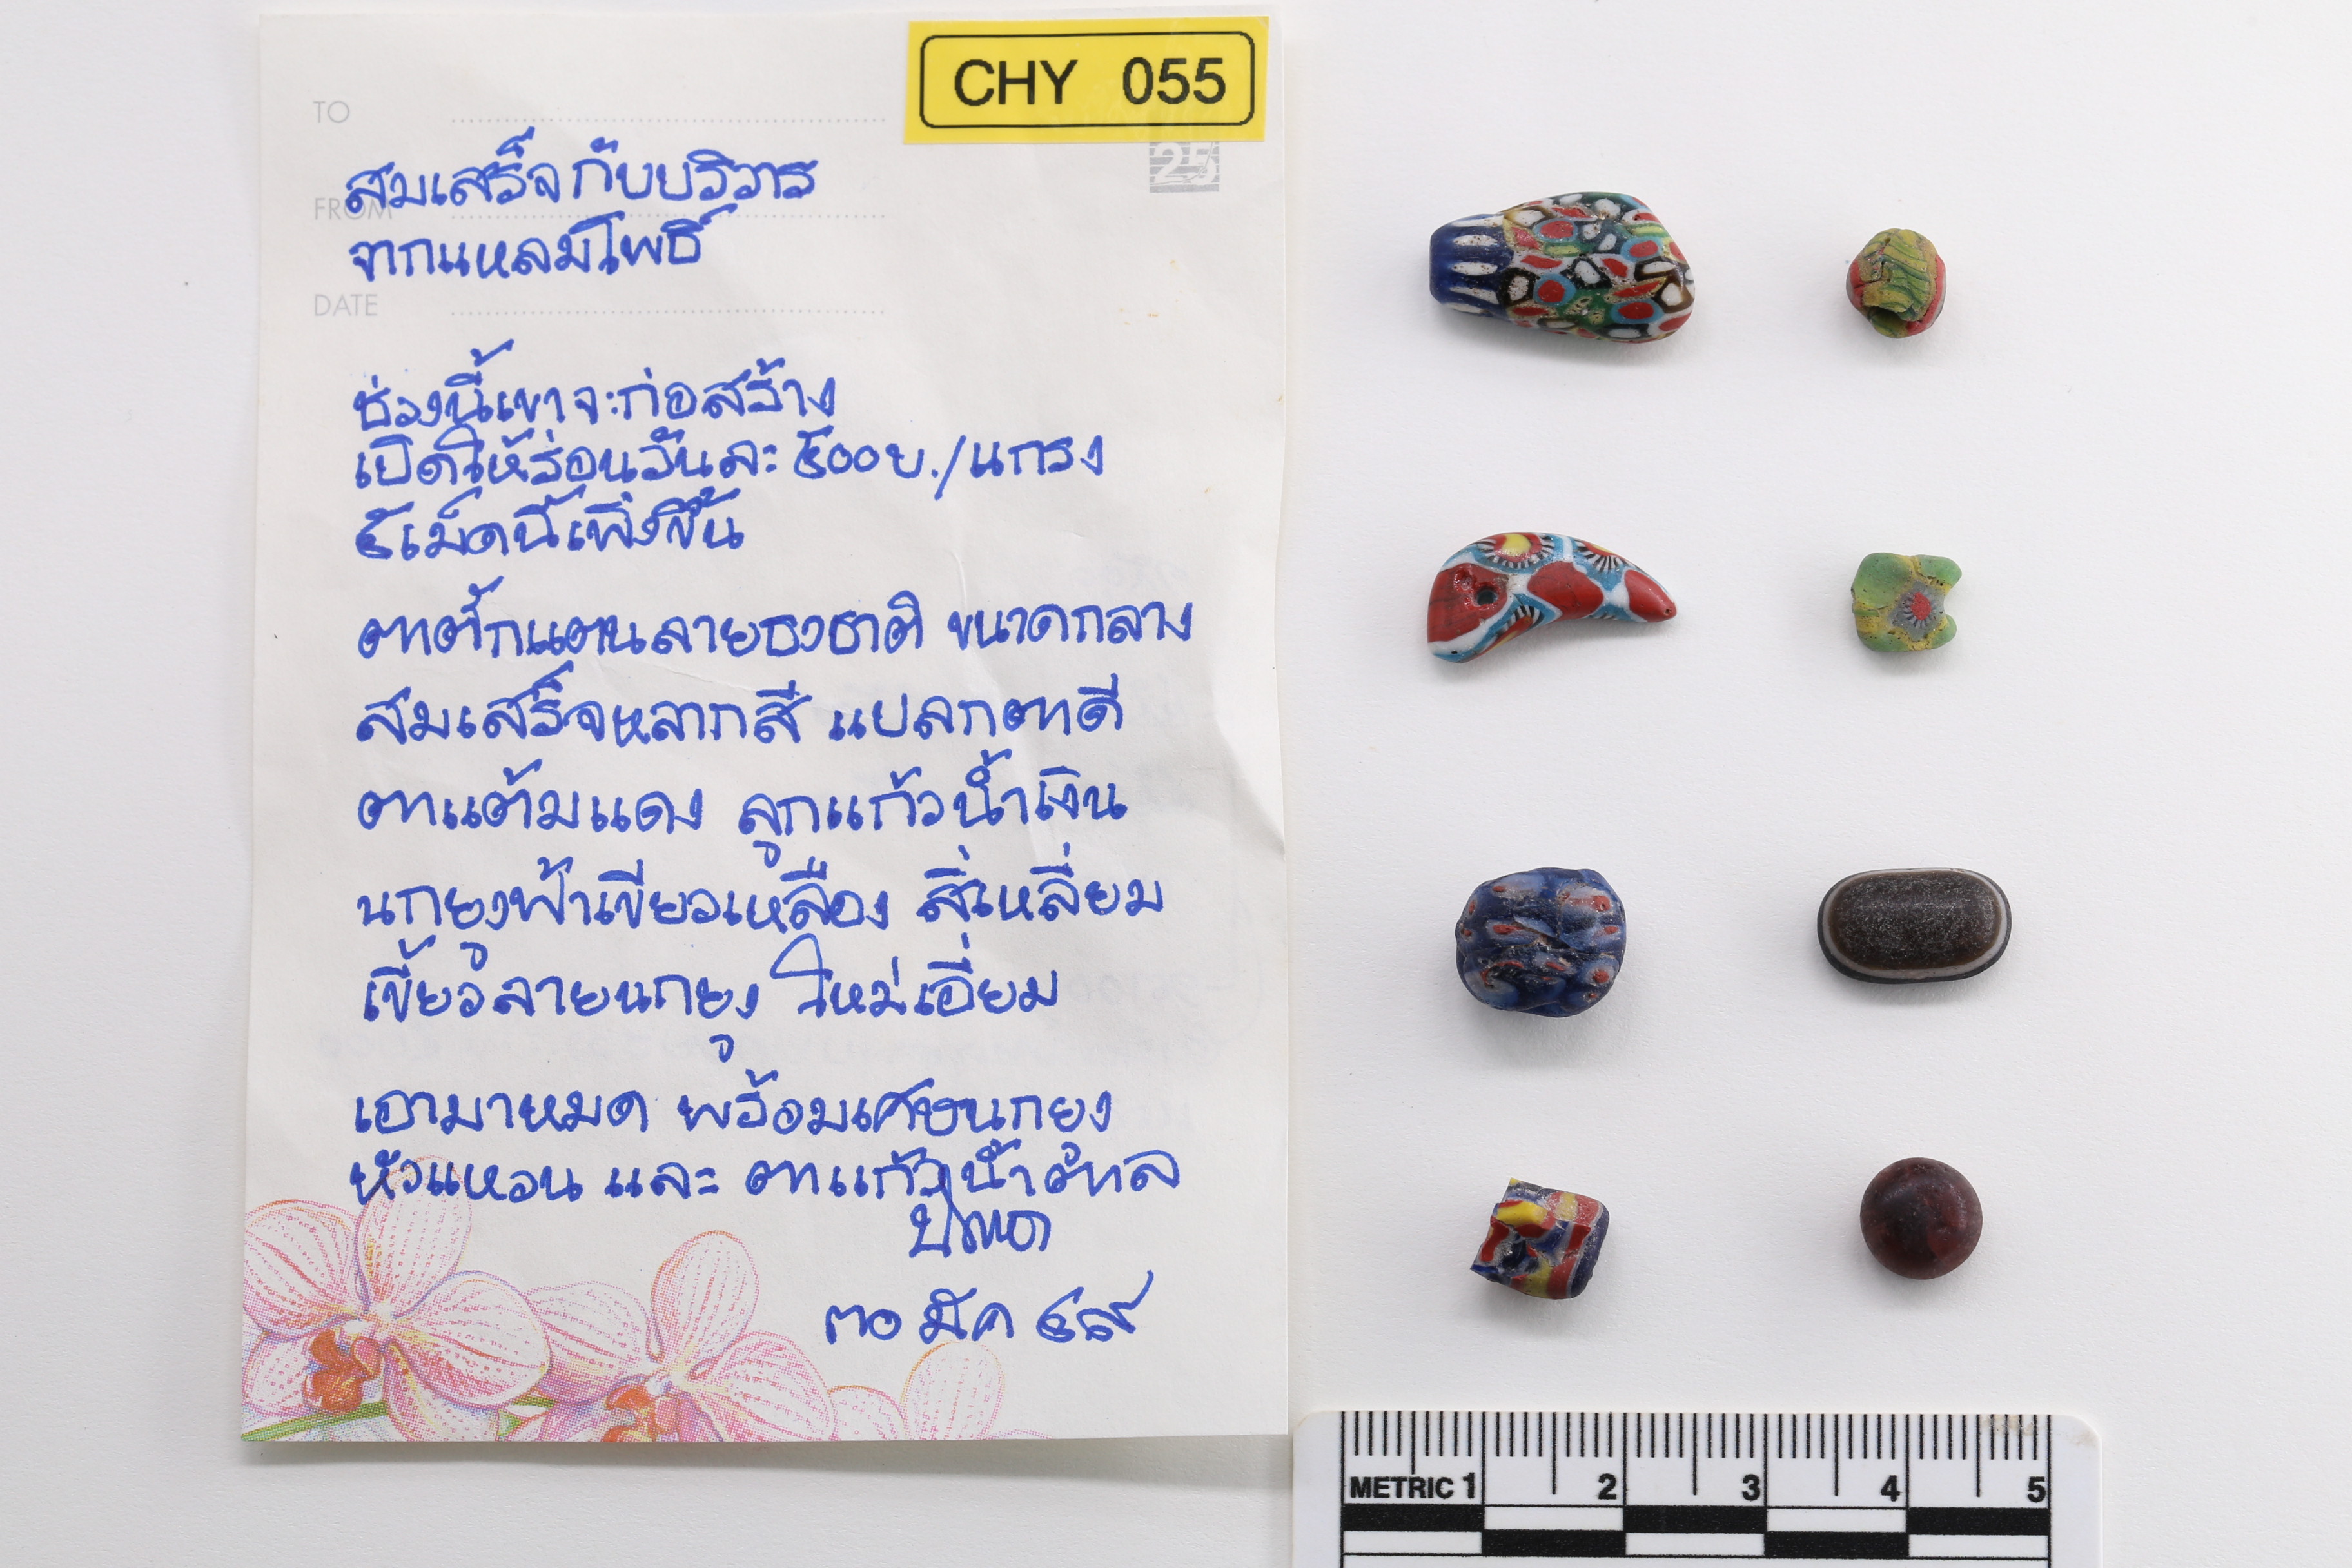 CHY 055
TO
25
สมเสร็จกับบริวาร
FROM
จากแหลมโพธิ์
DATE
ช่วงนี้เขาจะก่อสร้าง
เปิดให้ร่อนวันละ ๕๐๐บ./แกรง
๕เม็ดนี้เพิ่งขึ้น
ตาตั๊กแตนลายธงชาติ ขนาดกลาง
สมเสร็จหลากสี แปลกตาดี
ตาแต้มแดง ลูกแก้วน้ำเงิน
นกยูงฟ้าเขียวเหลือง สี่เหลี่ยม
เขี้ยวลายนกยูง ใหม่เอี่ยม
เอามาหมด พร้อมเศษนกยูง
หัวแหวน และ ตาแก้วน้ำตาล
๓๐ มีค ๔๙
METRIC 1 2 3 4 5